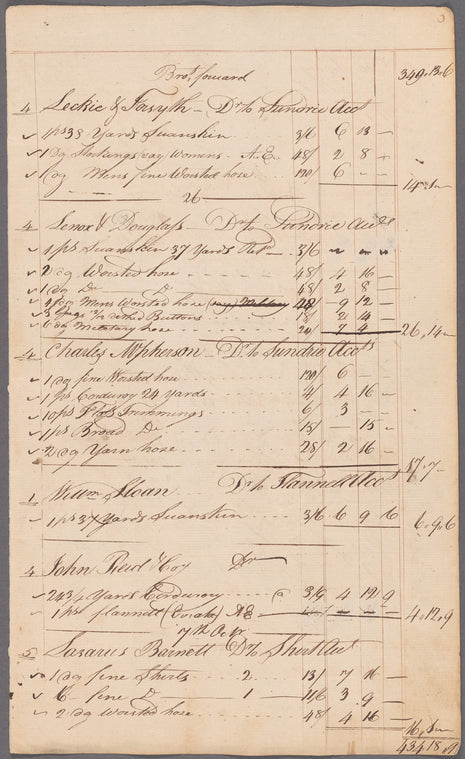 3
Brot forward 349.13.6
4 Leckie & Forsyth Dr to Sundrie Accts
1 ps 38 Yards Swanskin 3/6 6 13 —
1 dg Stockings (say Womens A.E. 48/ 2 8 —
1 dg Mens fine Worsted hose 120/ 6 — —
14.1 —
26
4 Lenox & Douglass Dr to Sundrie Accts
1 ps Swanskin 37 Yards 3/6
2 dg Worsted hose 48/ 4 16 —
1 dg Do Do 48/ 2 8 —
4 dg Mens Worsted hose (say) Military 9 12 —
3 Buttons 18/ 2 14 —
6 dg Military hose 24 7 4
26.14 —
4 Charles McPherson Dr to Sundrie Accts
1 dg fine Worsted hose 120/ 6 —
1 ps Corduroy 24 yards 4/ 4 16 —
10 ps Trimmings 6/ 3 —
1 ps Broad Do 15/ — 15 —
2 dg Yarn hose 28/ 2 16 —
17.7 —
1 Willm Sloan Dr to Flannell Acct
1 ps 37 Yards Swanskin 3/6 6 9 6
6.9.6
4 John Reid & Coy Dr
24 3/4 Yards Corduroy @ 3/9 4 12 9
1 ps flannell
4.12.9
7th
5 Lazarus Barnett Dr to Shirt Acct
1 dg fine Shirts 2 13/ 7 16 —
6 fine Do 1 11/6 3 9 —
2 dg Worsted hose 48/ 4 16 —
16.1 —
434.18.9